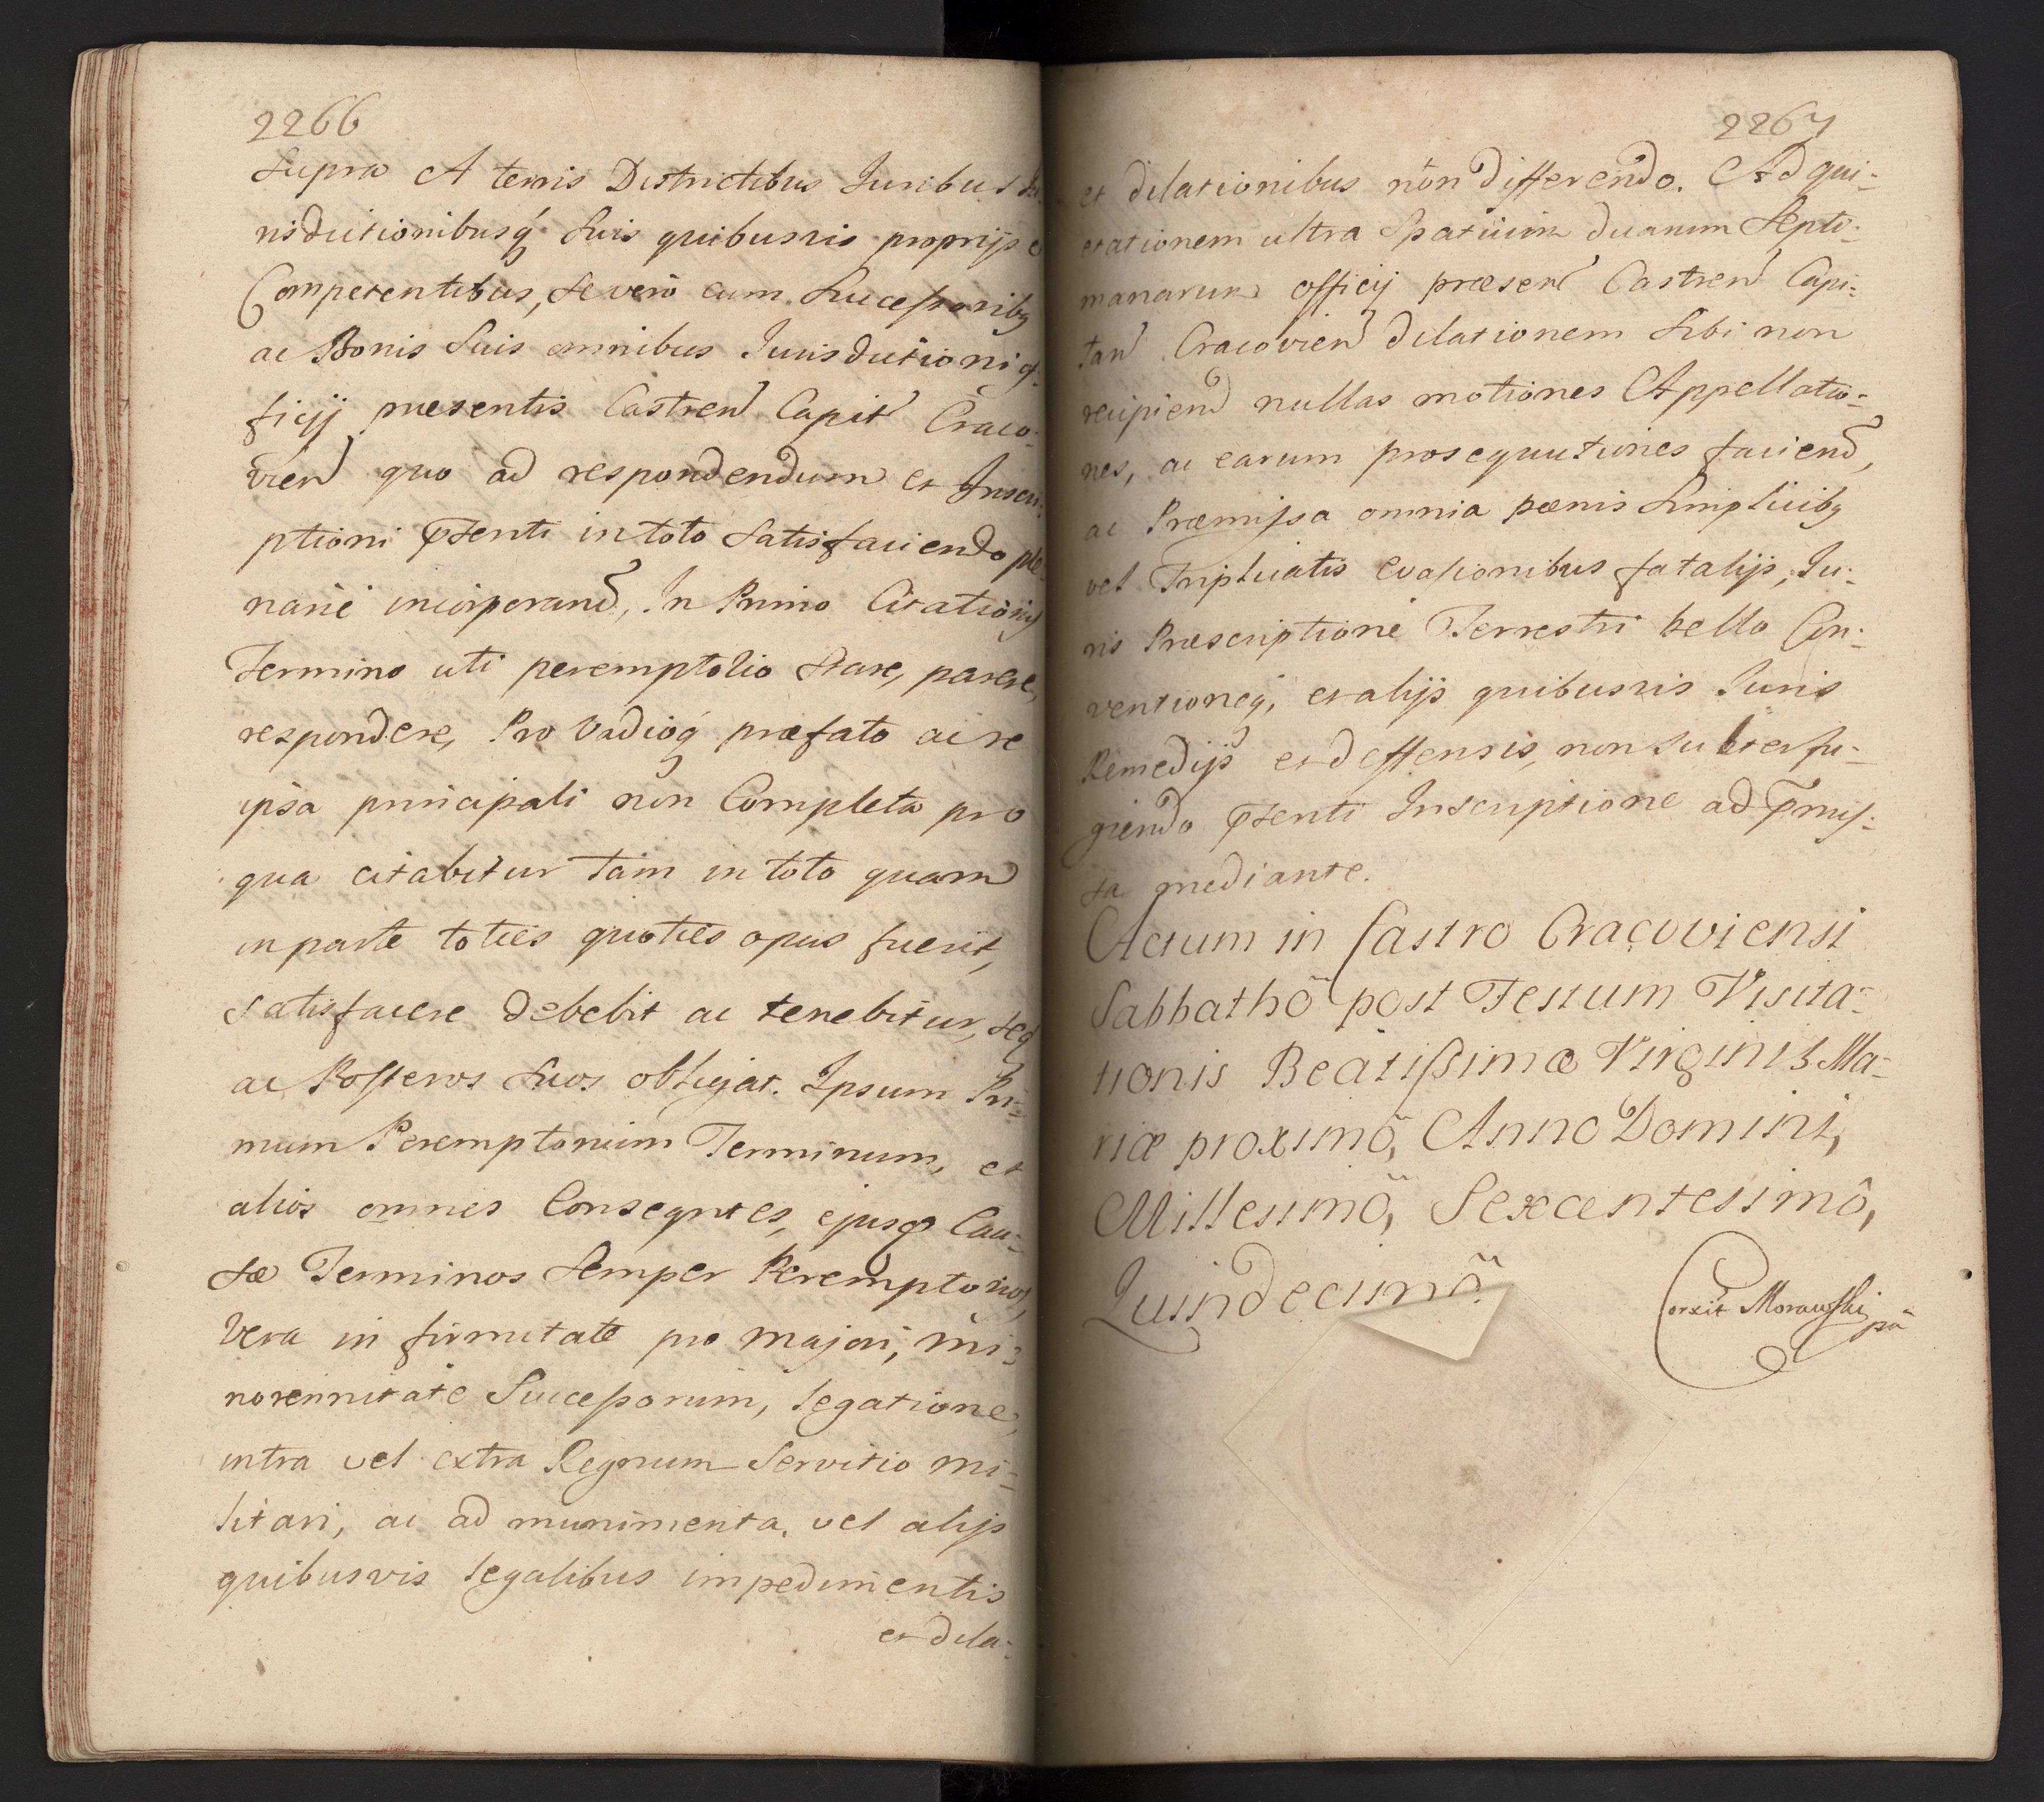 2266
Supra A terris Districtibus Juribus Ju-
risdictionibusq́ Suis quibusvis proprijs e
Competentibus, Se verò cum Successoribq
ac Bonis Suis omnibus Jurisdictioni of-
ficij praesentis Castren Capit Craco-
vien quo ad respondendum et Inscri-
ptioni pṡenti in toto Satisfaciendo ple-
nariè incorporand, In Primo Citationis
Termino uti peremptorio Stare, parere,
respondere, Pro Vadioq́ praefato ac re
ipsa principali non Completa pro
qua citabitur tam in toto quam
in parte toties quoties opus fuerit,
satisfacere debebit ac tenebitur, seq
ac Posteros Suos obligat. Ipsum Pri-
mum Peremptorium Terminum, et
alios omnes Conseqntes, ejusq Cau-
sae Terminos Semper Peremptorios,
Vera infirmitate pro majori, mi-
norennitate Successorum, legatione,
intra vel extra Regnum Servitio mi-
litari, ac ad munimenta, vel alijs
quibusvis legalibus impedimentis
et dila-
2267
et dilationibus non differendo. Ad qui-
etationem ultra Spatium duarum Septi-
manarum officij praesen Castren Capi-
tan Cracovien dilationem Sibi non
recipiend nullas motiones Appellatio-
nes, ac earum prosequutiones faciend,
ac Praemissa omnia poenis Simplicibq
vel Triplicatis evasionibus fatalijs, Ju-
ris Praescriptione Terrestri bello Con-
ventioneq́, et alijs quibusvis Juris
Remedijs et deffensis, non subterfu-
giendo pṡenti Inscriptione ad p̃mis-
sa mediante.
Actum in Castro Cracoviensi
Sabbathô post Festum Visita-
tionis Beatissimae Virginis Ma-
riae proximô, Anno Domini,
Millesimô, Sexcentesimô,
Quindecimô.
Corxit Morawski pã